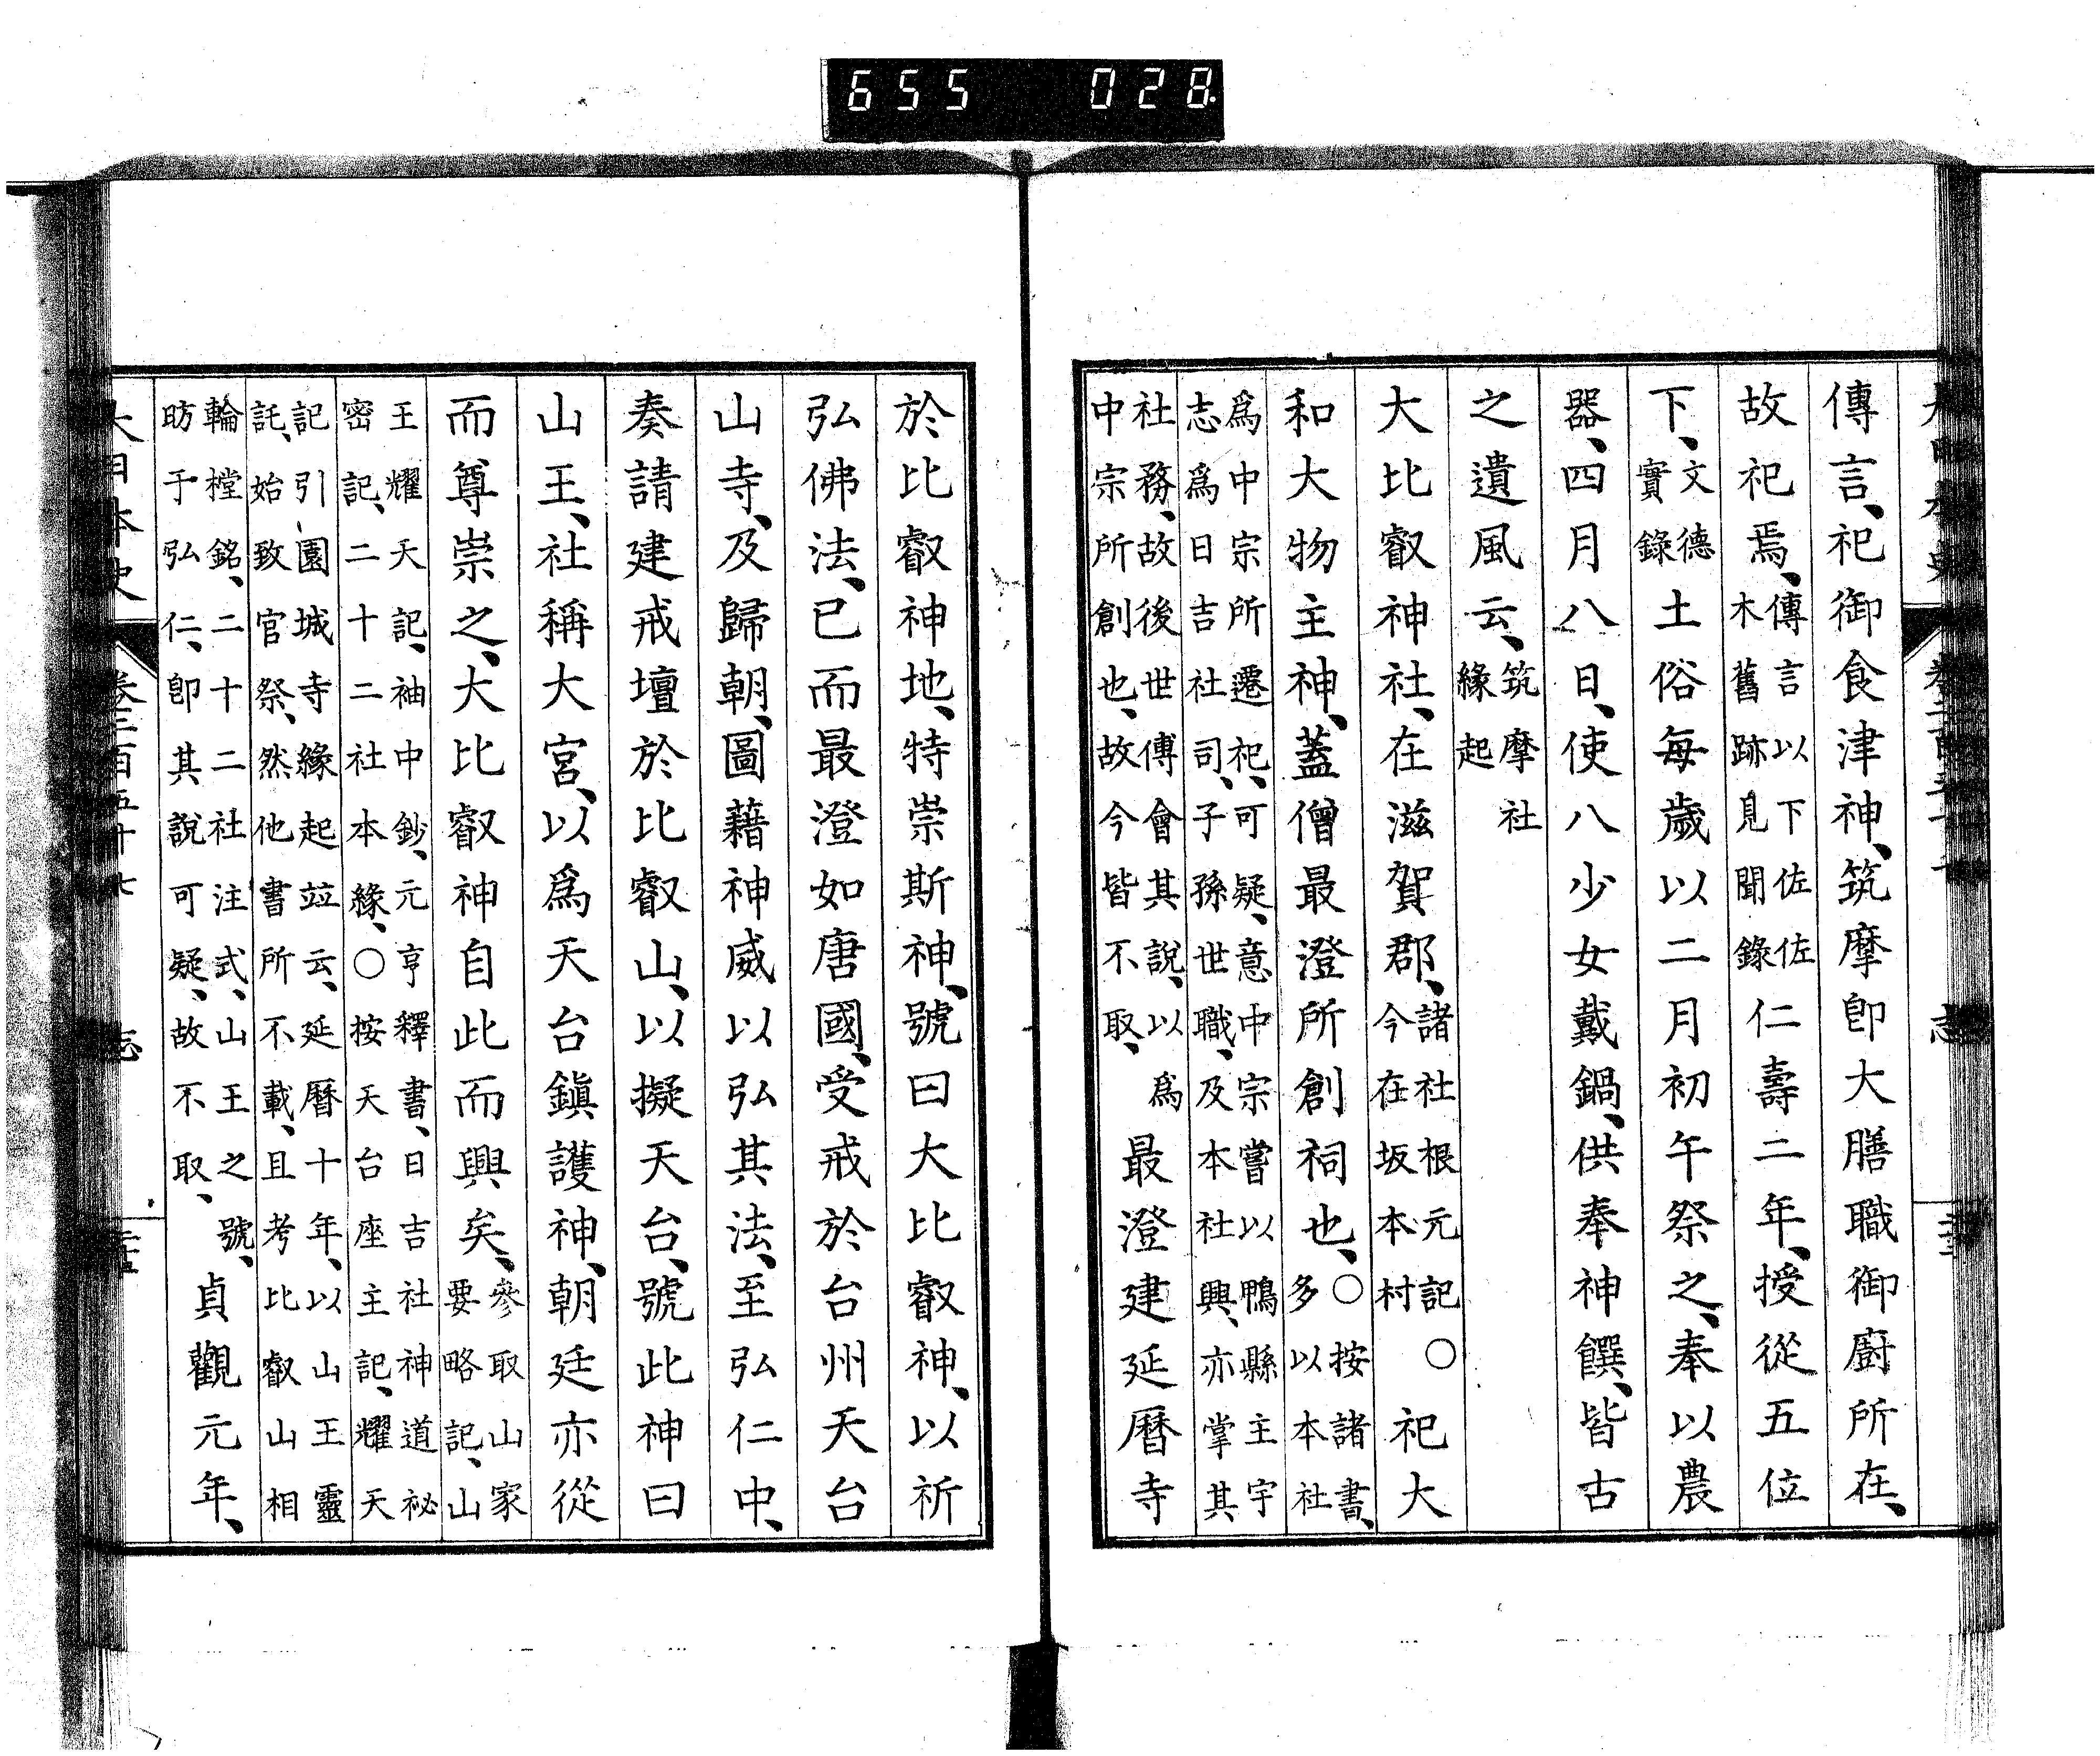 655 028
大日本史 卷二百五十七 志
傳言、祀御食津神、筑摩卽大膳職御廚所在、
故祀焉、傳言以下佐佐木舊跡見聞錄仁壽二年、授從五位
下、文德實錄土俗每歲以二月初午祭之、奉以農
器、四月八日、使八少女戴鍋、供奉神饌、皆古
之遺風云、筑摩社緣起
大比叡神社、在滋賀郡、諸社根元記○今在坂本村祀大
和大物主神、蓋僧最澄所創祠也、○按諸書、多以本社
爲中宗所遷祀、可疑、意中宗嘗以鴨縣主宇
志爲日吉社司、子孫世職、及本社興、亦掌其
社務、故後世傅會其說、以爲
中宗所創也、故今皆不取、最澄建延曆寺
於比叡神地、特崇斯神、號曰大比叡神、以祈
弘佛法、已而最澄如唐國、受戒於台州天台
山寺、及歸朝、圖藉神威以弘其法、至弘仁中、
奏請建戒壇於比叡山、以擬天台、號此神曰
山王、社稱大宮、以爲天台鎭護神、朝廷亦從
而尊崇之、大比叡神自此而興矣、參取山家要略記、山
王耀天記、袖中鈔、元亨釋書、日吉社神道祕
密記、二十二社本緣、○按天台座主記、耀天
記引園城寺緣起竝云、延曆十年、以山王靈
託、始致官祭、然他書所不載、且考比叡山相
輪樘銘、二十二社注式、山王之號、
昉于弘仁、卽其說可疑、故不取、貞觀元年、
大日本史 卷二百五十七 志